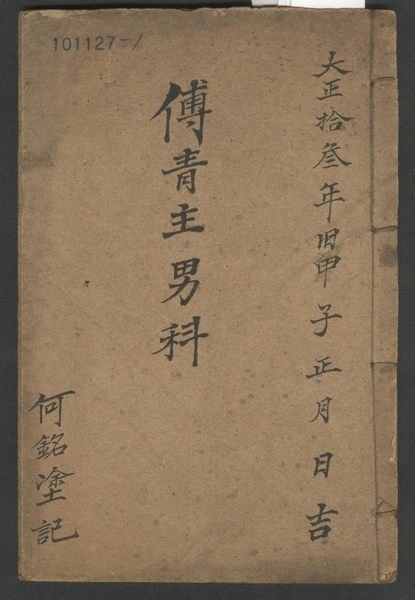 大正拾叁年旧甲子正月日吉
傅青主男科
何銘塗記
101127-1